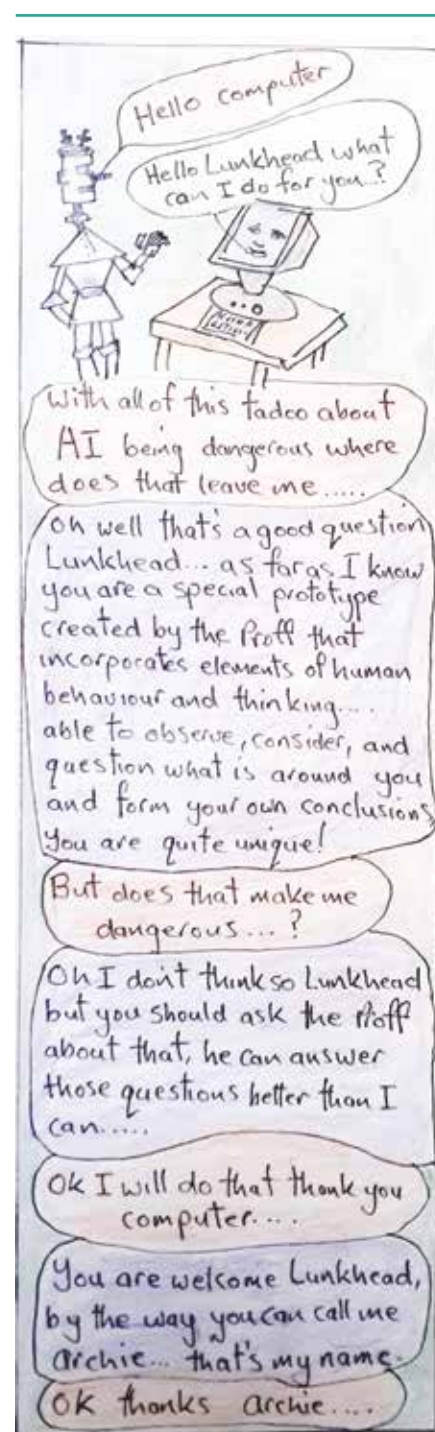 Hello computer
Hello Lunkhead what
can I do for you..?
With all of this tadoo about
AI being dangerous where
does that leave me.....
Oh well that's a good question
Lunkhead... as far as I know
you are a special prototype
created by the Proff that
incorporates elements of human
behaviour and thinking....
able to observe, consider, and
question what is around you
and form your own conclusions
You are quite unique!
But does that make me
dangerous...?
Oh I don't think so Lunkhead
but you should ask the Proff
about that, he can answer
those questions better than I
can.....
Ok I will do that thank you
computer....
You are welcome Lunkhead,
by the way you can call me
Archie... that's my name.
OK thanks Archie....